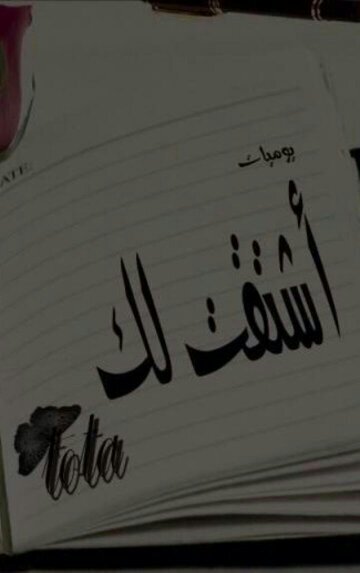 ATE
يوميات
أشتقت لك
tota